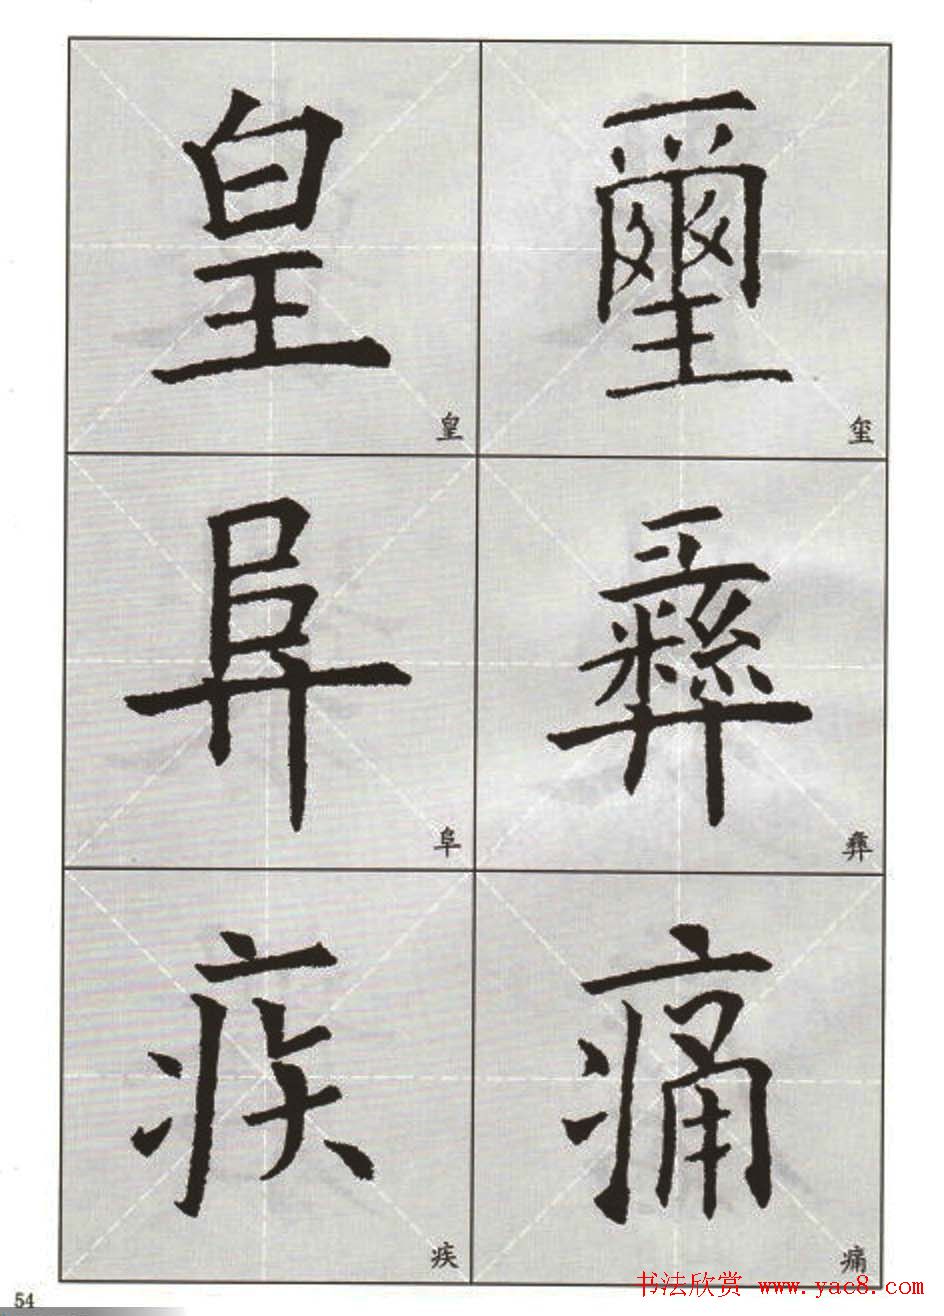 皇 璽
皇 玺
阜 彝
阜 彝
疾 痛
疾 痛
书法欣赏 www.yac8.com
54